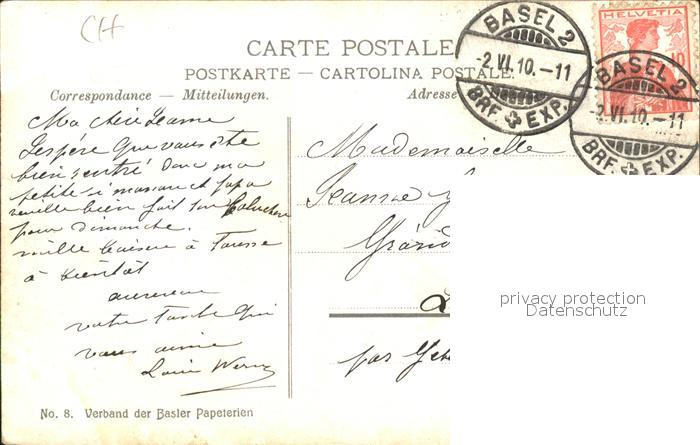 CH
CARTE POSTALE
POSTKARTE — CARTOLINA POSTALE.
Correspondance — Mitteilungen.
Adresse
BASEL 2
-2.VI.10.-11
BRF. EXP.
HELVETIA
BASEL 2
-2.VI.10.-11
BRF. EXP.
Ma chère Jeanne
J'espère que vous
bien rentré Donc ma
petite si maman et papa
veuille bien fait
pour Dimanche.
mille baiser à Tousse
à bientôt
au revoir
votre tante qui
vous aime
Mademoiselle
Jeanne
par
No. 8. Verband der Basler Papeterien
privacy protection
Datenschutz